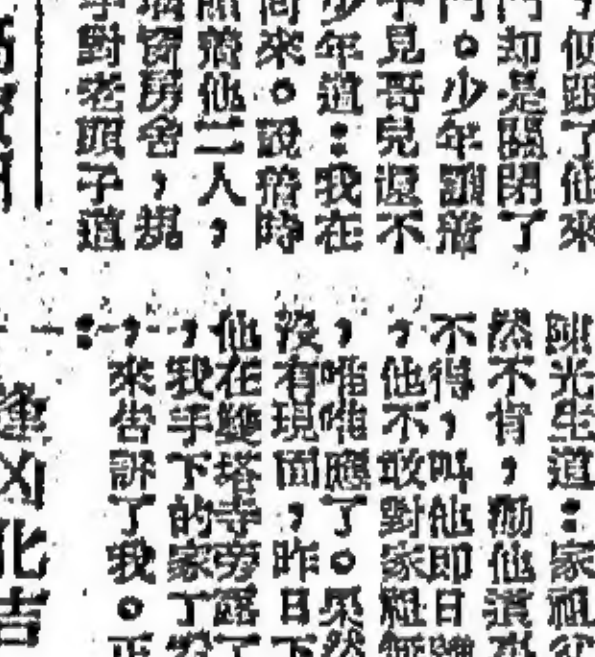 便跟了他來
却是關閉了
。少年
見哥兒還不
年道：我在
來。說着時
着他二人，
窗房舍，規
對老頭子道
陳光生道：家祖
然不肯，勸他須
不得，叫他即日
，他不敢對家祖
，唯唯應了。果然
沒有現面，昨日下
他在雙塔寺旁露了
，我手下的家丁
，來告訴了我。正
逢凶化吉